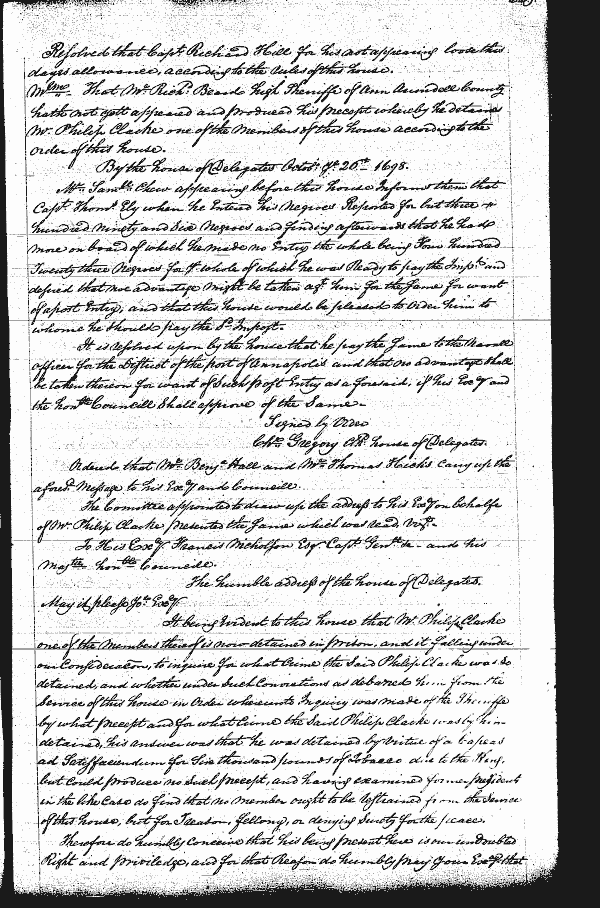 Resolved that Capt Richard Hill for his not appearing loose this
days allowance, according to the rules of this house.
That Mr Richd Beard high Sheriffe of Ann Arundell County
hath not yett appeared and produced his precept whereby he detains
Mr. Philip Clarke one of the Members of this house according to the
order of this house.
By the house of Delegates Octobr ye 26th 1698.
Mr. Samll Chew appearing before this house Informs them that
Capt Thoms Ely when he Entered his Negroes Reported for but three
hundred ninety and Six Negroes and finding afterwards that he had
more on board of which he made no Entry the whole being Four hundred
Twenty three Negroes for ye whole of which he was Ready to pay the Impst and
desired that no advantage might be taken agt him for the same for want
of a post Entry, and that this house would be pleased to Order him to
whome he should pay the sd Impost.
It is resolved upon by the house that he pay the same to the Navall
officer for the District of the port of Annapolis and that no advantage shall
be taken thereon for want of Such Post Entry as aforesaid, if his Excy and
the honble Councill Shall approve of the Same
Signed by Order
Chr Gregory Clk house of Delegates.
Ordered that Mr. Benja Hall and Mr. Thomas Hicks carry up the
aforesd Message to his Excy and Councill.
The Comittee appointed to draw up the address to his Excy on behalfe
of Mr. Philip Clarke presented the same which was read, vizt.
To His Excy Francis Nicholson Esqr Capt Genll &c and his
Majtys honble Councill.
The humble address of the house of Delegates.
May it please Yor Excy
It being Evident to this house that Mr. Philip Clarke
one of the Members thereof is now detained in prison, and it falling under
our Consideracon, to inquire for what Crime the Said Philip Clarke was so
detained, and whether under Such Convictions as debarred him from the
Service of this house in Order whereunto Inquiry was made of the Sheriffe
by what precept and for what Crime the Said Philip Clarke was by him
detained, his answer was that he was detained by Virtue of a Capeas
ad Satisfaciendum for Six thousand pounds of Tobacco due to the King,
but could produce no Such precept, and having examined former president
in the like Case do find that no Member ought to be restrained from the Service
of this house, but for Treason, fellony, or denying Surety for the peace.
Therefore do humbly Conceive that his being present here is our undoubted
Right and priviledge, and for that Reason do humbly pray Your Excy that